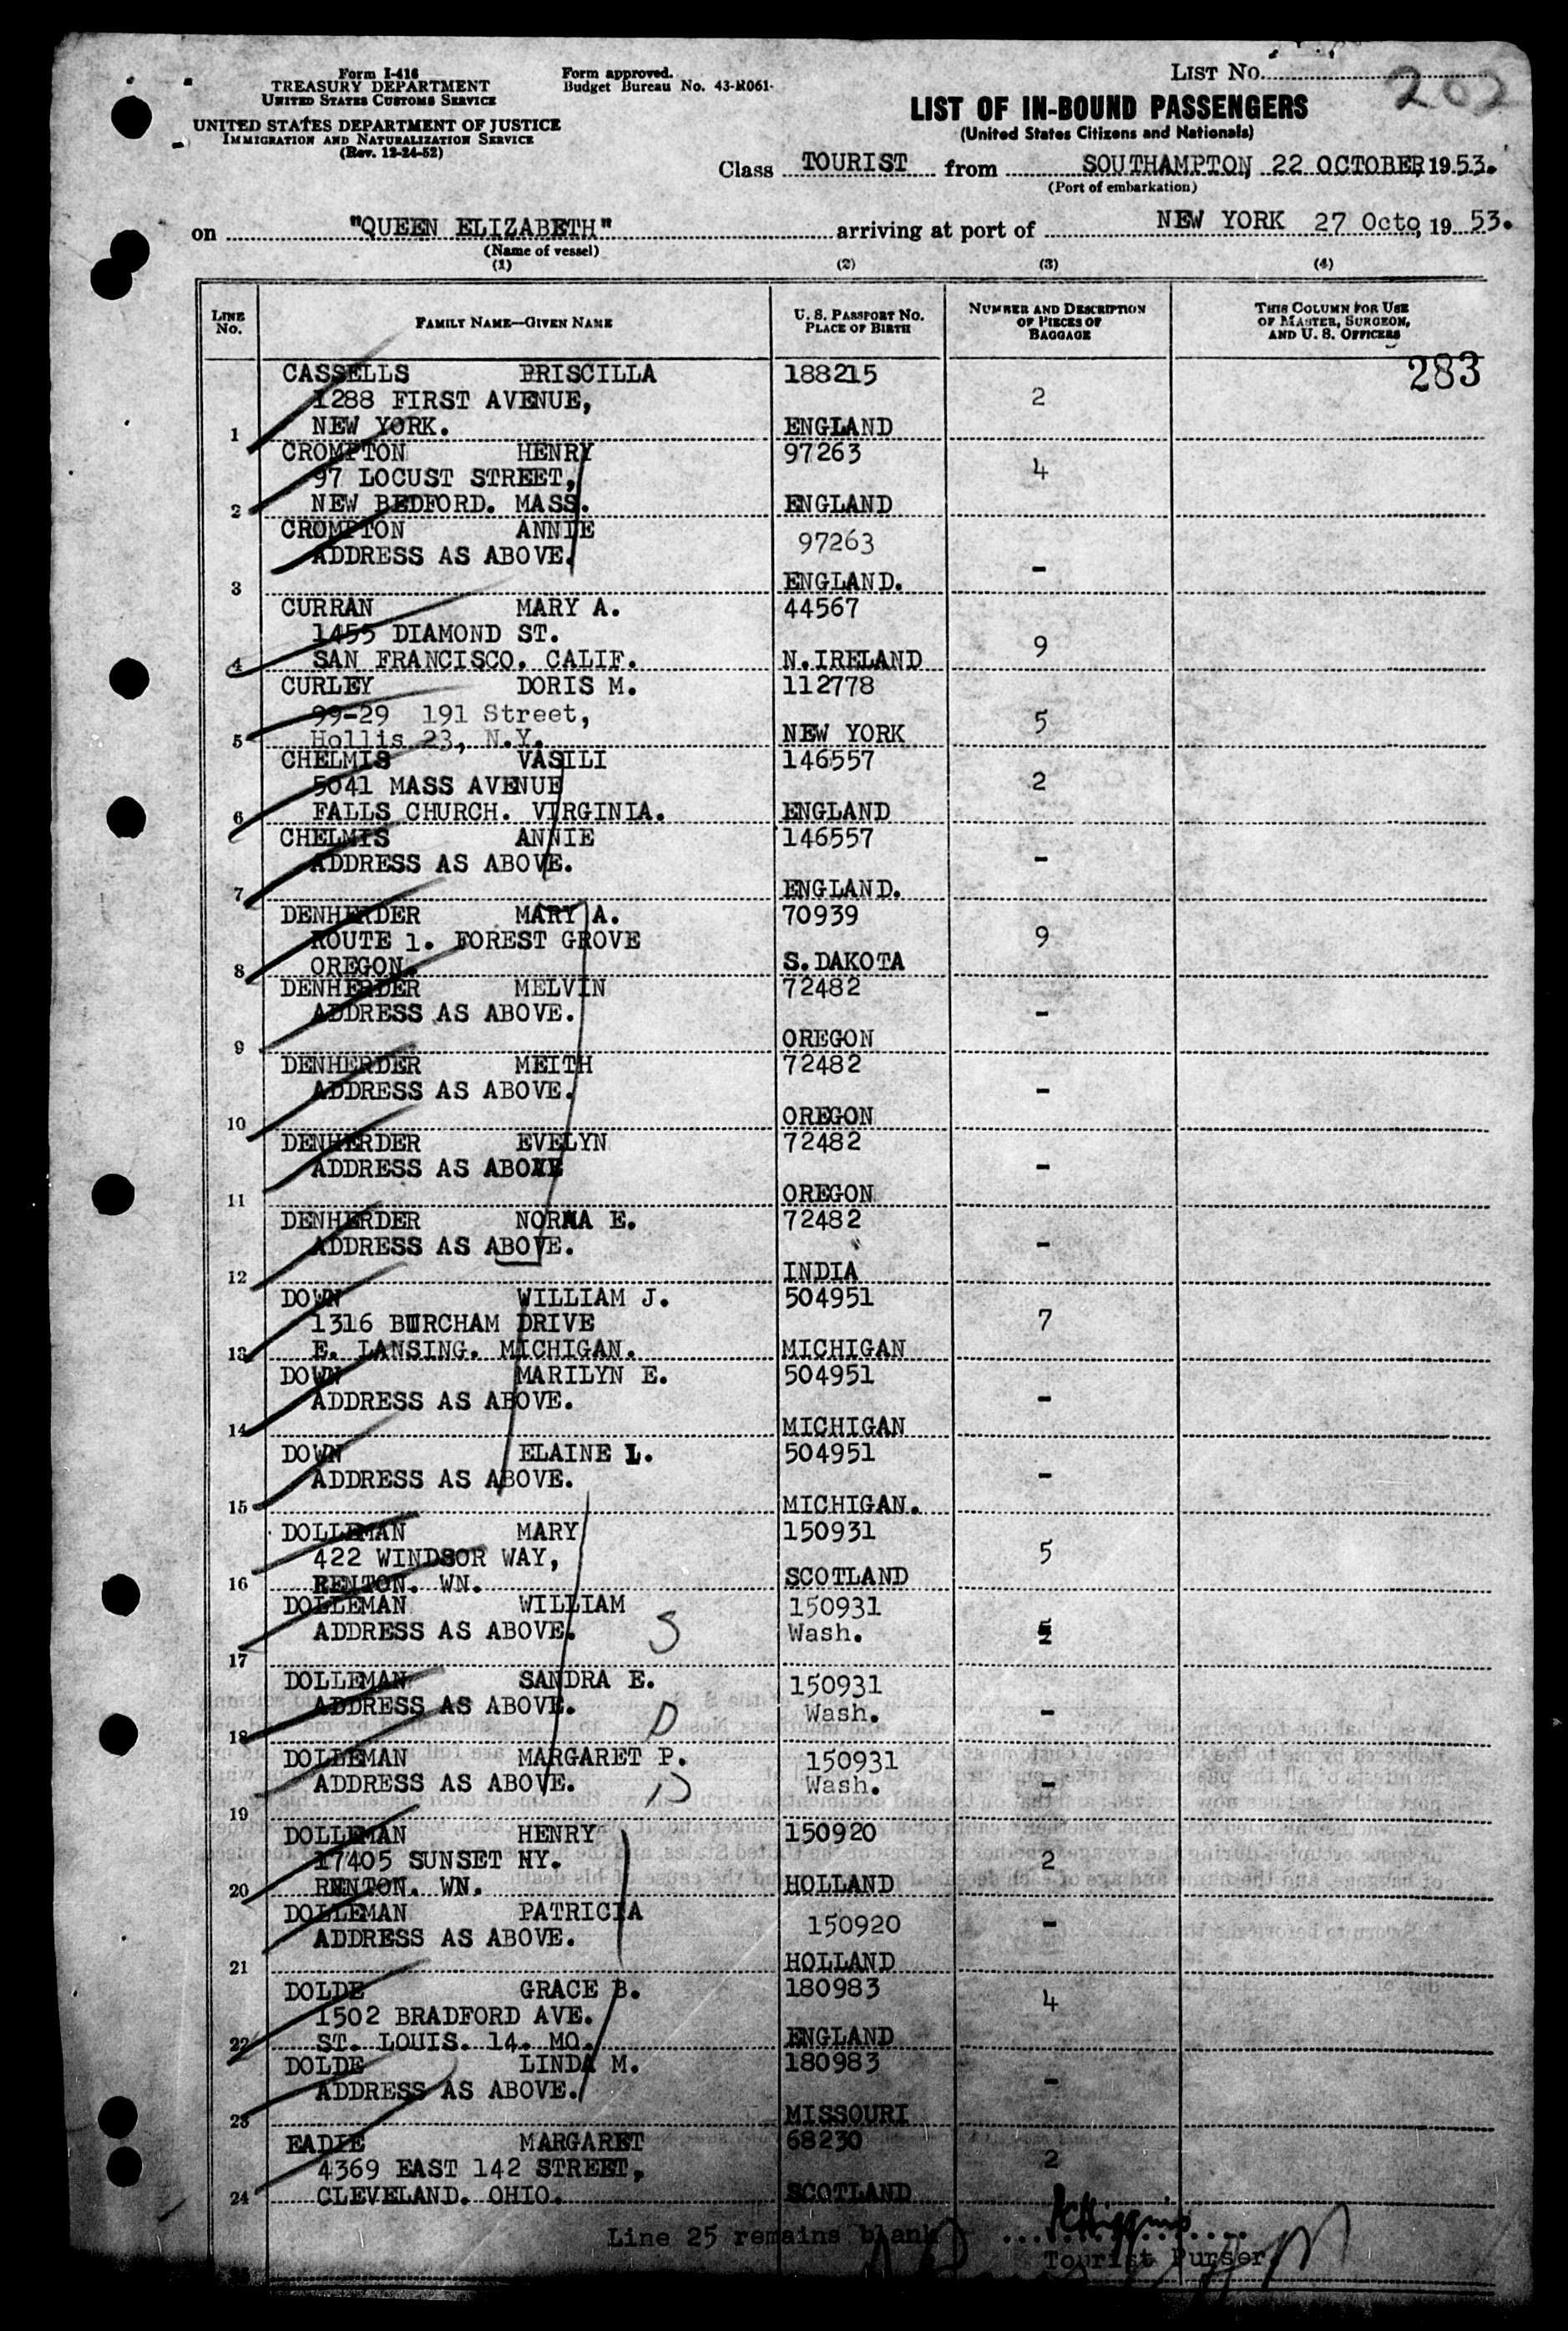 Form I-416
TREASURY DEPARTMENT
UNITED STATES CUSTOMS SERVICE
UNITED STATES DEPARTMENT OF JUSTICE
IMMIGRATION AND NATURALIZATION SERVICE
(Rev. 12-24-52)
Form approved.
Budget Bureau No. 43-R061.
LIST NO.
202
LIST OF IN-BOUND PASSENGERS
(United States Citizens and Nationals)
Class TOURIST from SOUTHAMPTON, 22 OCTOBER, 1953.
(Port of embarkation)
on "QUEEN ELIZABETH" arriving at port of NEW YORK 27 Octo, 1953.
(Name of vessel)
(1) (2) (3) (4)
LINE No. FAMILY NAME—GIVEN NAME U. S. PASSPORT NO. PLACE OF BIRTH NUMBER AND DESCRIPTION OF PIECES OF BAGGAGE THIS COLUMN FOR USE OF MASTER, SURGEON, AND U. S. OFFICERS
283
CASSELLS PRISCILLA 188215
1288 FIRST AVENUE, 2
1 NEW YORK. ENGLAND
CROMPTON HENRY 97263
97 LOCUST STREET, 4
2 NEW BEDFORD. MASS. ENGLAND
CROMPTON ANNIE 97263
ADDRESS AS ABOVE. -
3 ENGLAND.
CURRAN MARY A. 44567
1455 DIAMOND ST. 9
4 SAN FRANCISCO. CALIF. N.IRELAND
CURLEY DORIS M. 112778
99-29 191 Street, 5
5 Hollis 23, N.Y. NEW YORK
CHELMIS VASILI 146557
5041 MASS AVENUE 2
6 FALLS CHURCH. VIRGINIA. ENGLAND
CHELMIS ANNIE 146557
ADDRESS AS ABOVE. -
7 ENGLAND.
DENHERDER MARY A. 70939
ROUTE 1. FOREST GROVE 9
8 OREGON. S.DAKOTA
DENHERDER MELVIN 72482
ADDRESS AS ABOVE. -
9 OREGON
DENHERDER MEITH 72482
ADDRESS AS ABOVE. -
10 OREGON
DENHERDER EVELYN 72482
ADDRESS AS ABOVE -
11 OREGON
DENHERDER NORMA E. 72482
ADDRESS AS ABOVE. -
12 INDIA
DOWN WILLIAM J. 504951
1316 BURCHAM DRIVE 7
13 E. LANSING. MICHIGAN. MICHIGAN
DOWN MARILYN E. 504951
ADDRESS AS ABOVE. -
14 MICHIGAN
DOWN ELAINE L. 504951
ADDRESS AS ABOVE. -
15 MICHIGAN.
DOLLEMAN MARY 150931
422 WINDSOR WAY, 5
16 RENTON. WN. SCOTLAND
DOLLEMAN WILLIAM 150931
ADDRESS AS ABOVE. S Wash.
17
DOLLEMAN SANDRA E. 150931
ADDRESS AS ABOVE. D Wash. -
18
DOLLEMAN MARGARET P. 150931
ADDRESS AS ABOVE. D Wash. -
19
DOLLEMAN HENRY 150920
17405 SUNSET HY. 2
20 RENTON. WN. HOLLAND
DOLLEMAN PATRICIA 150920
ADDRESS AS ABOVE. -
21 HOLLAND
DOLDE GRACE B. 180983
1502 BRADFORD AVE. 4
22 ST. LOUIS. 14. MO. ENGLAND
DOLDE LINDA M. 180983
ADDRESS AS ABOVE. -
23 MISSOURI
EADIE MARGARET 68230
4369 EAST 142 STREET, 2
24 CLEVELAND. OHIO. SCOTLAND
Line 25 remains blank
Tourist Purser.